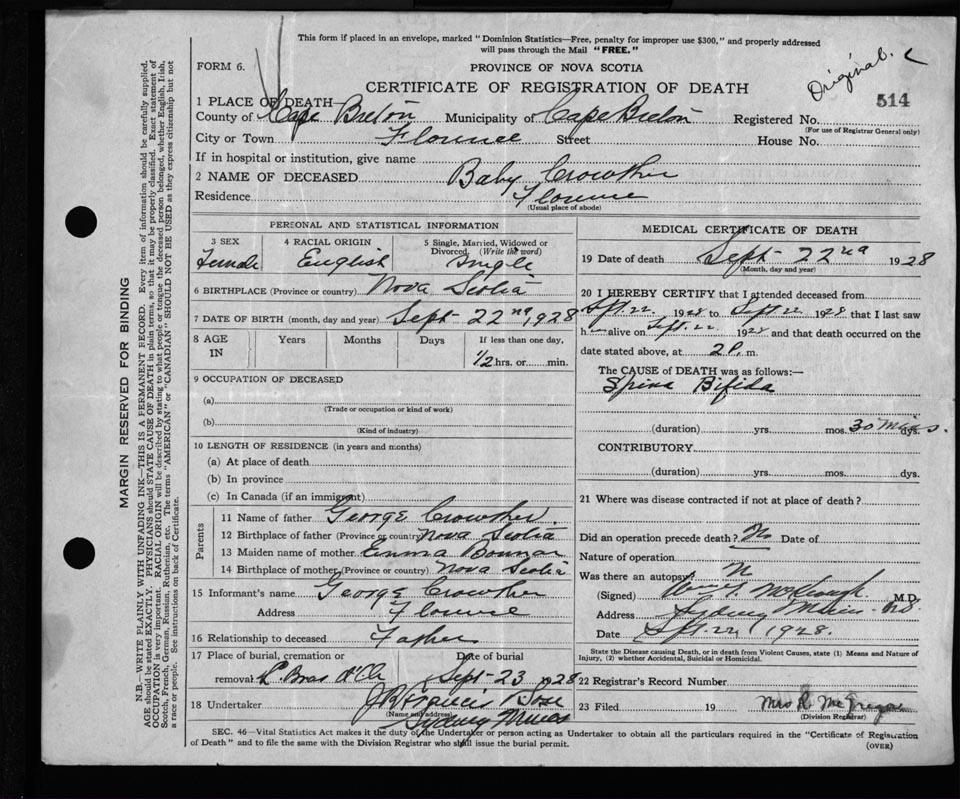 This form if placed in an envelope, marked "Dominion Statistics—Free, penalty for improper use $300," and properly addressed
will pass through the Mail "FREE."
Original.
FORM 6.
PROVINCE OF NOVA SCOTIA
CERTIFICATE OF REGISTRATION OF DEATH
514
1 PLACE OF DEATH
County of Cape Breton Municipality of Cape Breton Registered No.
(For use of Registrar General only)
City or Town Florence Street House No.
If in hospital or institution, give name
2 NAME OF DECEASED Baby Crowther
Residence Florence
(Usual place of abode)
PERSONAL AND STATISTICAL INFORMATION
3 SEX Female
4 RACIAL ORIGIN English
5 Single, Married, Widowed or Divorced. (Write the word) Single
6 BIRTHPLACE (Province or country) Nova Scotia
7 DATE OF BIRTH (month, day and year) Sept 22nd, 1928
8 AGE IN Years Months Days If less than one day, 1/2 hrs. or min.
9 OCCUPATION OF DECEASED
(a)
(Trade or occupation or kind of work)
(b)
(Kind of industry)
10 LENGTH OF RESIDENCE (in years and months)
(a) At place of death
(b) In province
(c) In Canada (if an immigrant)
Parents
11 Name of father George Crowther.
12 Birthplace of father (Province or country) Nova Scotia
13 Maiden name of mother Emma
14 Birthplace of mother (Province or country) Nova Scotia
15 Informant's name George Crowther
Address Florence
16 Relationship to deceased Father
17 Place of burial, cremation or Date of burial
removal L Bras d'Or Sept 23 1928
18 Undertaker J R Francis
(Name and address)
Sydney Mines
MEDICAL CERTIFICATE OF DEATH
19 Date of death Sept 22nd 1928
(Month, day and year)
20 I HEREBY CERTIFY that I attended deceased from
Sept. 22 1928 to Sept 22 1928 that I last saw
h alive on Sept. 22 1928 and that death occurred on the
date stated above, at 2 P. m.
The CAUSE of DEATH was as follows:—
Spina Bifida
(duration) yrs. mos. 30 Mins. dys.
CONTRIBUTORY.
(duration) yrs. mos. dys.
21 Where was disease contracted if not at place of death?
Did an operation precede death? No Date of
Nature of operation
Was there an autopsy N
(Signed) M.D.
Address Sydney Mines N.S.
Date Sept. 22, 1928.
State the Disease causing Death, or in death from Violent Causes, state (1) Means and Nature of
Injury, (2) whether Accidental, Suicidal or Homicidal.
22 Registrar's Record Number
23 Filed 19 Mrs R. McGregor
(Division Registrar)
SEC. 46—Vital Statistics Act makes it the duty of the Undertaker or person acting as Undertaker to obtain all the particulars required in the "Certificate of Registration
of Death" and to file the same with the Division Registrar who shall issue the burial permit.
(OVER)
MARGIN RESERVED FOR BINDING
N.B.—WRITE PLAINLY WITH UNFADING INK—THIS IS A PERMANENT RECORD. Every item of information should be carefully supplied.
AGE should be stated EXACTLY. PHYSICIANS should STATE CAUSE OF DEATH in plain terms, so that it may be properly classified. Exact statement of
OCCUPATION is very important. RACIAL ORIGIN will be described by stating to what people or tongue the deceased person belonged, whether English, Irish,
Scotch, French, German, Russian, Ruthenian, etc. The terms "AMERICAN" or "CANADIAN" SHOULD NOT BE USED as they express citizenship but not
a race or people. See instructions on back of Certificate.